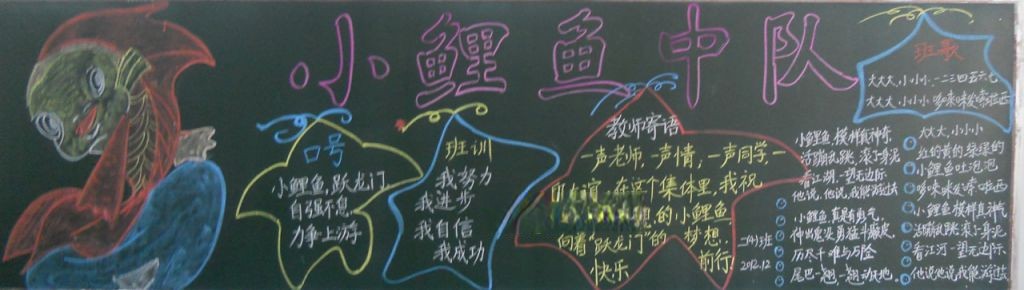 小鲤鱼中队
口号
小鲤鱼,跃龙门
自强不息
力争上游
班训
我努力
我进步
我自信
我成功
教师寄语
一声老师,一声情,一声同学一
谊,在这个集体里,我祝
的小鲤鱼,
向着“跃龙门”的梦想,
快乐前行
二(4)班
2012.12
班歌
大大大,小小小,一二三四五六七
大大大,小小小,哆来咪发嗦啦西
小鲤鱼,模样真神奇
活蹦乱跳,滚了身泥
看江湖,一望无边际
他说,他说,我能游过去
小鲤鱼,真有勇气,
历尽千难与万险
尾巴一翘,一翘动天地。
大大大,小小小
红的黄的绿绿的
小鲤鱼吐泡泡
哆来咪发嗦啦西
小鲤鱼模样真神气
活蹦乱跳,滚了身泥,
看江河一望无边际
他说他说我能游过去